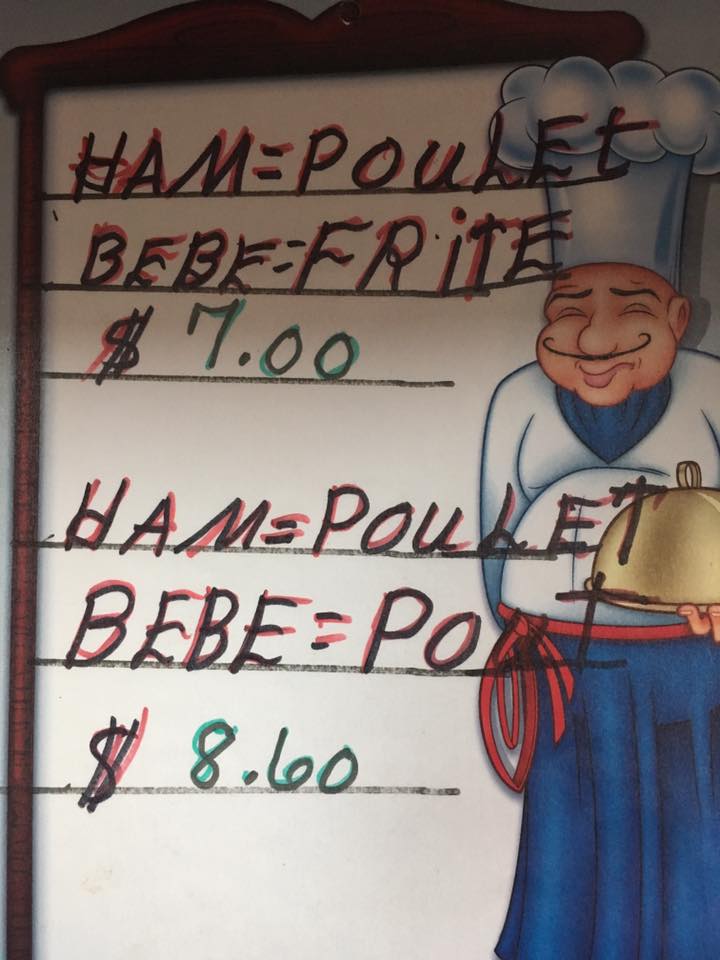 HAM=POULET
BEBE=FRITE
$ 7.00
HAM=POULET
BEBE=POUT
$ 8.60